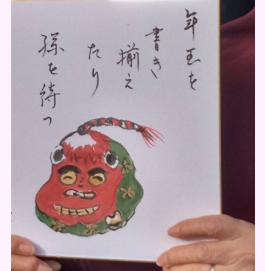 年玉を
書き
揃え
たり
孫を待つ